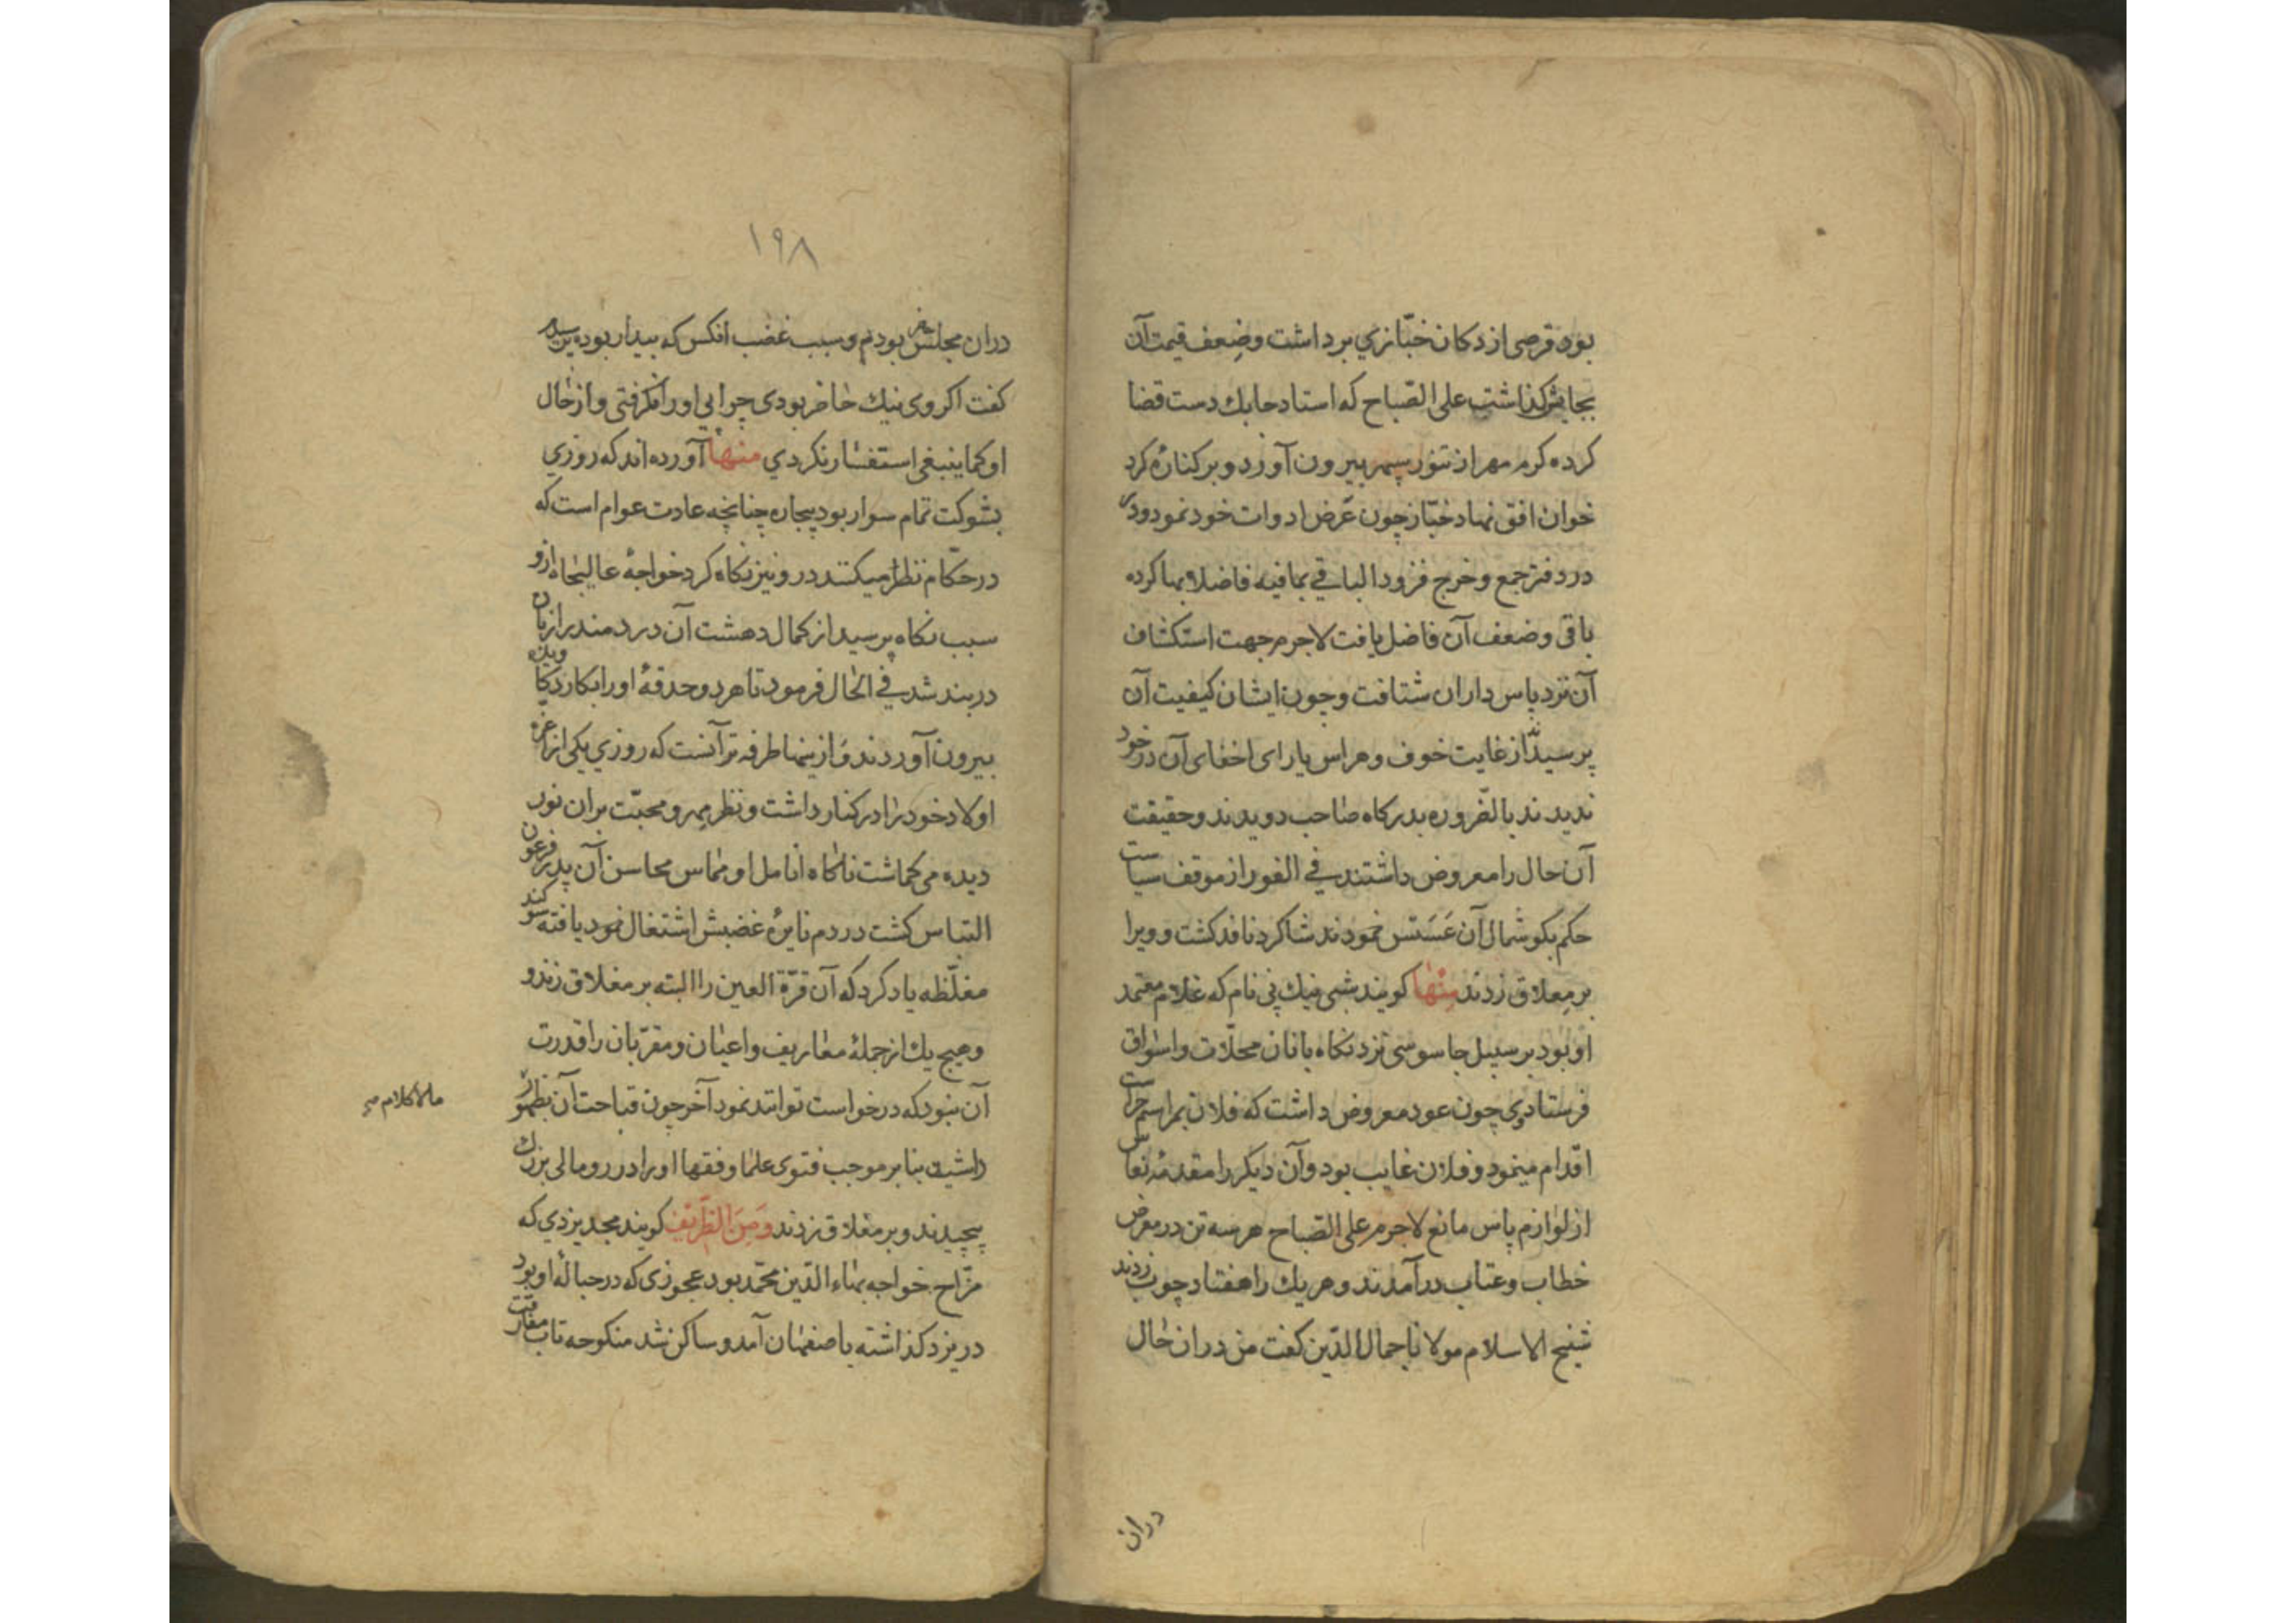 بود قرصی از دکان خبّازی برداشت وضِعف قیمت آن
بجایش کذاشت علی الصّباح که استاد چابك دست قضا
کرده کرم مهر از تنور سپهر بیرون آورد و بر کنارهٔ کرد
خوان افق نهاد خبّاز چون عَرض ادوات خود نمود و
در دفتر جمع و خرج فزود الباقی بما فیه فاضلا بها کرده
باقی وضعف آن فاضل یافت لاجرم جهت استکشاف
آن نزد پاس داران شتافت و چون ایشان کیفیت آن
پرسید از غایت خوف و هراس یارای اخفای آن در خود
ندیدند بالضّروره بدرکاه صاحب دویدند و حقیقت
آن حال را معروض داشتند فی الفور از موقف سیاست
حکم بکوشمال آن عَسَسَ نمودند شاکرد نافذ کشت و ویرا
بر مِعلاق زدند مِنْها کویند شبی نیك پی نام که غلام معتمد
او بود بر سبیل جاسوسی نزد نکاه بانان محلّات و اسواق
فرستاد وی چون عود معروض داشت که فلان بمراسم حراست
اقدام مینمود و فلان غایب بود و آن دیکر را مقدمهٔ نعاس
از لوازم پاس مانع لاجرم علی الصّباح هر سه تن در معرض
خطاب و عتاب درآمدند و هر یك را هفتاد چوب زدند
شیخ الاسلام مولانا جمال الدّین کفت من در ان حال
دران
۱۹۸
دران مجلس بودم و سبب غضب انکس که بیدار بود
کفت اکر وی نیك حاضر بودی چرا پی او را نکرفتی و از حال
او کما ینبغی استفسار نکردی منها آورده اند که روزی
بشوکت تمام سوار بود بیچاره چنانچه عادت عوام است که
در حکّام نظر میکنند درو نیز نکاه کرد خواجهٔ عالیجاه ازو
سبب نکاه پرسید از کمال دهشت آن دردمند را زبان
در بند شد فی الحال فرمود تا هر دو حدقهٔ او را بکارد
بیرون آوردند و از ینها طرفه تر آنست که روزی یکی از اعزه
اولاد خود را در کنار داشت و نظر مهر و محبّت بر ان نور
دیده می کماشت ناکاه انامل او مماس محاسن آن پدر فرعون
التباس کشت در دم نایرهٔ غضبش اشتعال نمود یافته سوکند
مغلّظه یاد کرد که آن قرّة العین را البته بر معلاق زند و
و هیچ یك از جملهٔ معاریف و اعیان و مقرّبان را قدرت
آن نبود که درخواست توانند نمود آخر چون قباحت آن بظهور
داشت بنابر موجب فتوی علما و فقها او را در رومالی بزرك
پیچیدند و بر معلاق زدند وَمِنَ الظَّرایف کویند مجد یزدی که
مزّاح خواجه بهاء الدّین محمّد بود عجوزی که در حبالهٔ او بود
در یزد کذاشته باصفهان آمد و ساکن شد منکوحه تاب مفارقت